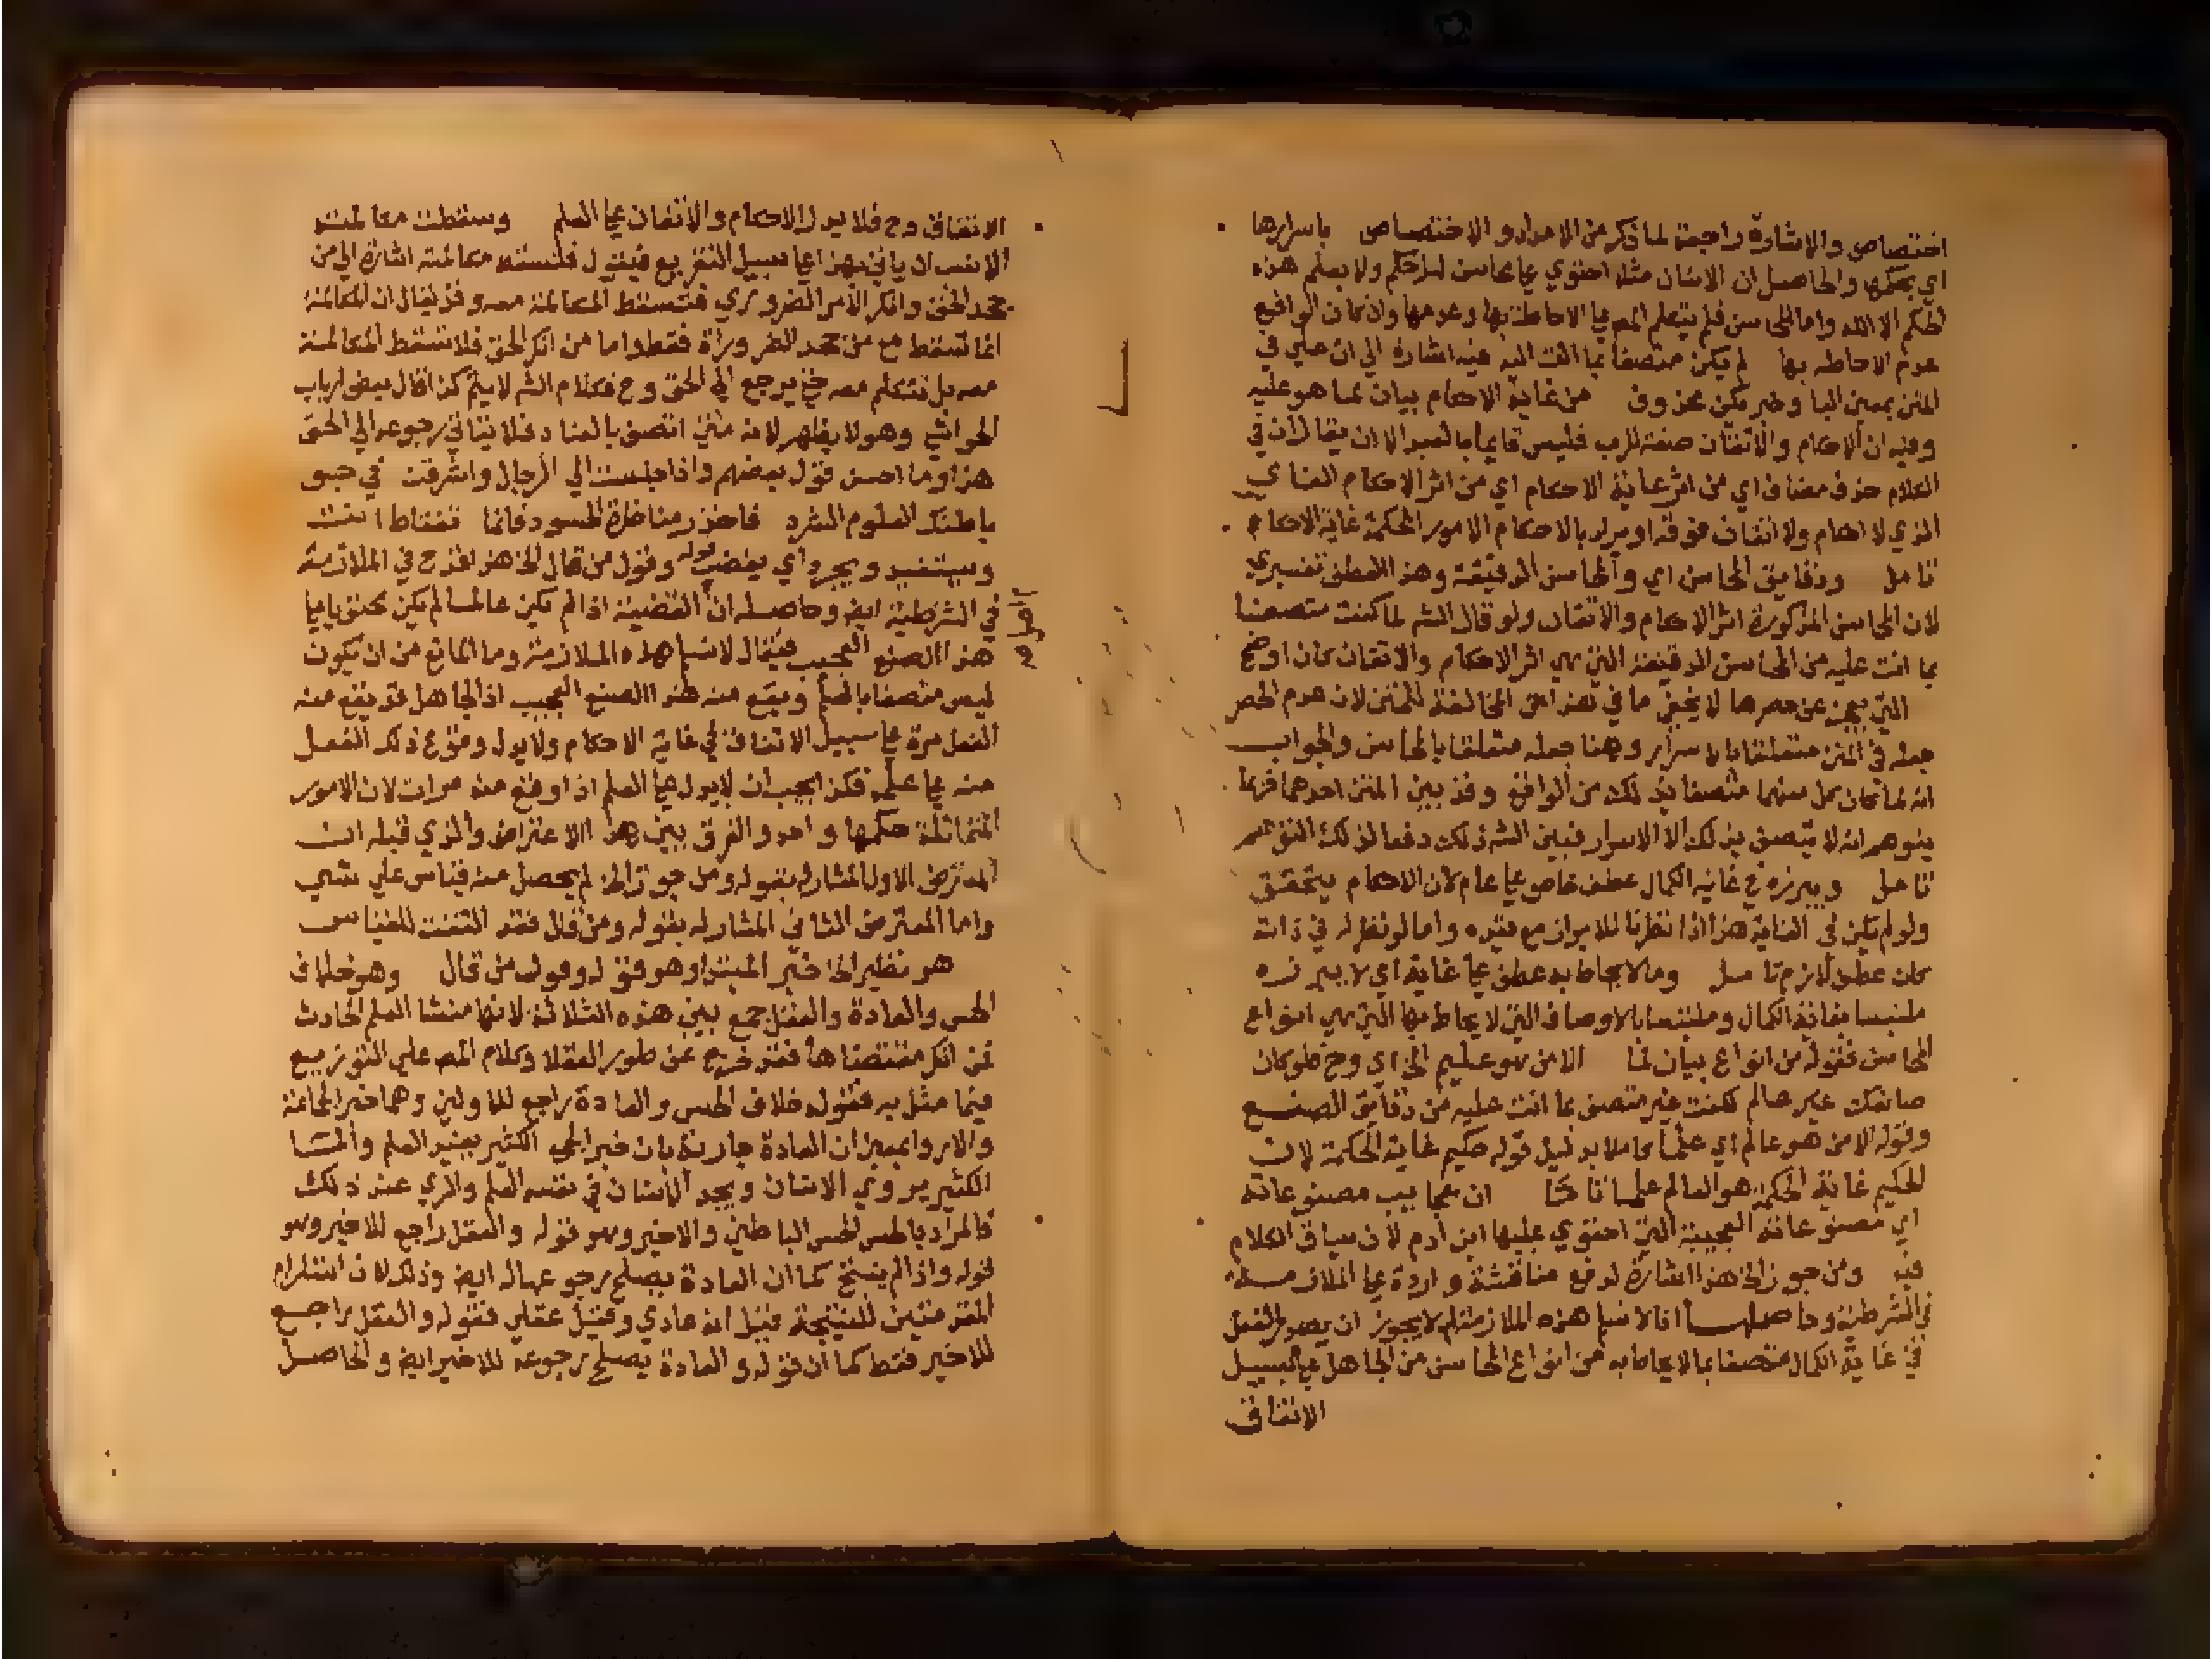 اختصاص والاشارة راجعة لما ذكر من الامداد والاختصاص باسرارها
اي بحكمها والحاصل ان الانسان مثلا احتوي علي محاسن لها حكم ولا يعلم هذه
الحكم الا الله واما المحاسن فلم يتكلم المص علي الاحاطة بها وعدمها وان كان الواقع
عدم الاحاطه بها لم يكن متصفا بما انت اليه فيه اشارة الي ان علي في
المتن بمعني البا وخبر يكن محذوف من غاية الاحكام بيان لما هو عليه
وفيه ان الاحكام والاتقان صفة للرب فليس قايما بالعبد الا ان يقال ان في
الكلام حذف مضاف اي من اثر غاية الاحكام اي من اثر الاحكام الغاي
الذي لا احكام ولا اتقان فوقه او يراد بالاحكام الامور المحكمة غاية الاحكام
تامل ودقايق المحاسن اي والمحاسن الدقيقة وهذا العطف تفسيري
لان المحاسن المذكورة اثر الاحكام والاتقان ولو قال الشـ لما كنت متصفا
بما انت عليه من المحاسن الدقيقة التي هي اثر الاحكام والاتقان كان اوضح
التي يعجز عن حصرها لا يخفي ما في هذا من المخالفة للمتن لان عدم الحصر
جعله في المتن متعلقا بالاسرار وهنا جعله متعلقا بالمحاسن والجواب
انه لما كان كل منهما متصفا بذلك من الواقع وقد بين المتن احدهما فربما
يتوهم انه لا يتصف بذلك الا الاسرار فبين الشـ ذلك دفعا لذلك التوهم
تامل ويبرزه في غاية الكمال عطف خاص علي عام لان الاحكام يتحقق
ولو لم يكن في الغاية هذا اذا نظرنا للابراز مع قيده واما لو نظر له في ذاته
كان عطف لازم تامل وما لا يحاط به عطف علي غاية اي لا يبرزه
ملتبسا بغاية الكمال وملتبسا بالاوصاف التي لا يحاط بها التي هي انواع
المحاسن فقوله من انواع بيان لما الا من هو عليم الخ اي وح فلو كان
صانعك غير عالم لكنت غير متصف بما انت عليه من دقايق الصنع
وقوله الا من هو عالم اي علما كاملا بدليل قوله حكيم غاية الحكمة لان
الحكيم غاية الحكمة هو العالم علما تاما ان عجايب مصنوعاته
اي مصنوعاته العجيبة التي احتوي عليها ابن ادم لان سياق الكلام
فيه ومن جوز الخ هذا اشارة لدفع مناقشة واردة علي الملازمة
في الشرطية وحاصلها انا لا نسلم هذه الملازمة لم لا يجوز ان يصدر الفعل
في غاية الكمال متصفا بما لا يحاط به من انواع المحاسن من الجاهل علي سبيل
الاتفاق
الاتفاق وح فلا يدل الاحكام والاتقان علي العلم وسقطت مكالمته
الانسب ان ياتي بهذا علي سبيل التفريع فيقول فتسقط مكالمته اشارة الي من
جحد الحق وانكر الامر الضروري فتسقط المكالمة معه وقد يقال ان المكالمة
انما تسقط مع من جحد الضرورة فقط واما من انكر الحق فلا تسقط المكالمة
معه بل نتكلم معه حتي يرجع الي الحق وح فكلام الشـ لا يتم كذا قال بعض ارباب
الحواشي وهو لا يظهر لانه متي اتصف بالعناد فلا يتاتي رجوعه الي الحق
هذا وما احسن قول بعضهم واذا جلست الي الرجال واشرقت في جو
باطنك العلوم الشرد فاحذر مناظرة الحسود فانما تغتاظ انت
ويستفيد ويجحد اي يغضب قوله وقول من قال الخ هذا قدح في الملازمة
في الشرطية ايضا وحاصله ان القضية اذا لم يكن عالما لم يكن محتويا علي
هذا الصنع العجيب فيقال لا نسلم هذه الملازمة وما المانع من ان يكون
ليس متصفا بالعلم ويقع منه هذا الصنع العجيب اذ الجاهل قد يقع منه
الفعل مرة علي سبيل الاتفاق في غاية الاحكام ولا يدل وقوع ذلك الفعل
منه علي علمه فكذا يجب ان لا يدل علي العلم اذا وقع منه مرات لان الامور
المتماثلة حكمها واحد والفرق بين هذا الاعتراض والذي قبله ان
المعترض الاول المشار له بقوله ومن جوز الخ لم يحصل منه قياس علي شي
واما المعترض الثاني المشار له بقوله ومن قال فقد التفت للقياس
هو نظير الخ خبر المبتدا وهو قوله وقول من قال وهو خلاف
الحس والعادة والعقل جمع بين هذه الثلاثة لانها منشا العلم الحادث
فمن انكر مقتضاها فقد خرج عن طور العقلا وكلام المص علي التوزيع
فيما مثل به فقوله خلاف الحس والعادة راجع للاولين وهما خبر الجماعة
والاروا بمعني ان العادة جارية بان خبر الجمع الكثير يفيد العلم والما
الكثير يروي الانسان ويجد الانسان في نفسه العلم والري عند ذلك
فالمراد بالحس الحس الباطني والاخير وهو قوله والعقل راجع للاخير وهو
قوله واذا لم ينتج كما ان العادة يصلح رجوعها له ايضا وذلك لان استلزام
المقدمتين للنتيجة قيل انه عادي وقيل عقلي فقوله والعقل راجع
للاخير فقط كما ان قوله والعادة يصلح رجوعه للاخير ايضا والحاصل